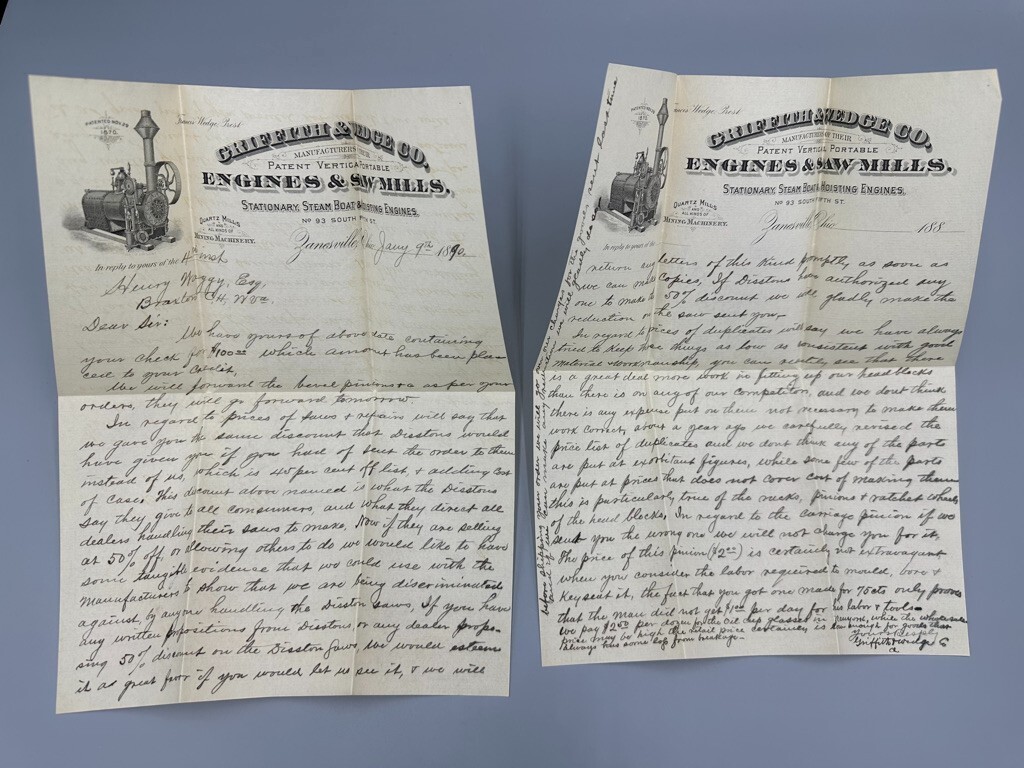 PATENTED NOV. 29
1870.
Francis Wedge, Prest.
GRIFFITH & WEDGE CO,
MANUFACTURERS OF THEIR
PATENT VERTICAL PORTABLE
ENGINES & SAW MILLS.
STATIONARY, STEAM BOAT & HOISTING ENGINES,
No 93 SOUTH FIFTH ST.
QUARTZ MILLS
AND
ALL KINDS OF
MINING MACHINERY.
Zanesville, Ohio Jany 9th 1890.
In reply to yours of the 4th inst
Henry Esq,
Braxton C.H, W Va.
Dear Sir:
We have yours of above date containing
your check for $100 00 which amount has been pla-
ced to your credit,
We will forward the bevel pinions & as per your
orders, they will go forward tomorrow.
In regard to prices of saws & repairs will say that
we gave you the same discount that Disstons would
have given you if you had of sent the order to them
instead of us, which is 40 per cent off list & adding cost
of case. This discount above named is what the Disstons
say they give to all consumers, and what they direct all
dealers handling their saws to make, Now if they are selling
at 50% off or allowing others to do we would like to have
some tangible evidence that we could use with the
manufacturers to show that we are being discriminated
against, by anyone handling the Disston saws, If you have
any written propositions from Disstons or any dealer propo-
sing 50% discount on the Disston saws, we would esteem
it as great favor if you would let us see it, & we will
1870.
Francis Wedge, Prest
GRIFFITH & WEDGE CO,
MANUFACTURERS OF THEIR
PATENT VERTICAL PORTABLE
ENGINES & SAW MILLS.
STATIONARY, STEAM BOAT & HOISTING ENGINES,
No 93 SOUTH FIFTH ST.
QUARTZ MILLS
AND
ALL KINDS OF
MINING MACHINERY.
Zanesville, Ohio 188
In reply to yours of the
return any letters of this kind promptly, as soon as
we can make copies, If Disstons have authorized any
one to make 50% discount we will gladly make the
reduction on the saw sent you.
In regard to prices of duplicates will say we have always
tried to keep these things as low as consistent with good
material & workmanship, you can readily see that there
is a great deal more work in fitting up our head blocks
than there is on any of our competitors, and we dont think
there is any expense put on them not necessary to make them
work correct, about a year ago we carefully revised the
price list of duplicates and we dont think any of the parts
are put at exorbitant figures, while some few of the parts
are put at prices that does not cover cost of making them
this is particularly true of the racks, pinions & ratchet wheels
of the head blocks, In regard to the carriage pinion if we
sent you the wrong one we will not charge you for it,
The price of this pinion ($2 00) is certainly not extravagant
when you consider the labor required to mould, bore &
Keyseat it, the fact that you got one made for 75cts only proves
that the man did not get $1 00 per day for his labor & tools.
We pay per dozen for the Oil cup glasses in while the wholesale
price may be high the retail price certainly is low enough for goods that
always has some loss from breakage.
Yours Respfy,
Griffith & Wedge Co
before shipping your order we will get our charges for the goods sent last time
and if we have made any mistakes we will gladly do so